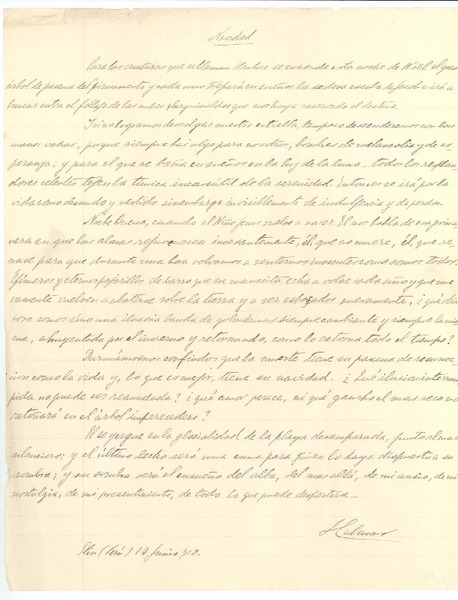 Navidad
Para las creaturas que se llaman Hombres se enciende esta noche de Noël el gran
árbol de pascua del firmamento y cada uno trepará en sueños la sedosa escala de fe e irá a
buscar entre el follaje de las nubes, el aguinaldo que nos haya reservado el destino.
Si no logramos descolgar nuestra estrella, tampoco descenderemos con las
manos vacías, porque siempre hay algo para nosotros, bombas de melancolía y de es
peranza; y para el que se baña en sueños en la luz de la luna, todos los resplan
dores celestes tejen la túnica inconsútil de la serenidad. Entonces se irá por la
vida como desnudo y vestido sin embargo invisiblemente de indulgencia y de perdón.
Noche Buena, cuando el Niño Jesús vuelve a nacer. Él nos habla de esa prima
vera en que las almas rejuvenecen incesantemente, Él, que no muere, Él, que re
nace para que durante una hora volvamos a sentirnos inocentes como somos todos.
Efímeros y eternos pajarillos de barro que su manecita echa a volar cada año y que nue
vamente vuelven a abatirse sobre la tierra y a ser esbozados nuevamente, ¿qué otra
cosa somos sino una ilusoria banda de golondrinas, siempre cambiante y siempre la mis
ma, ahuyentada por el invierno y retornando, como lo retorna todo el tiempo?
Durmámonos confiados, que la muerte tiene su pascua de resurrec
ción como la vida y, lo que es mejor, tiene su navidad. ¿Qué ilusión interrum
pida no puede ser reanudada? ¿qué amor perece, ni qué gancho el más seco no
retoñará en el árbol imperecedero?
Él se yergue en la glacialidad de la playa desamparada, junto al mar
silencioso; y el último lecho será una cuna para quien lo haya dispuesto a su
sombra; y su sombra será el ensueño del alba, del más allá, de mi ansia, de mi
nostalgia, de mi presentimiento, de todo lo que puede despertar...
Eten (Perú) 14 Junio 910.